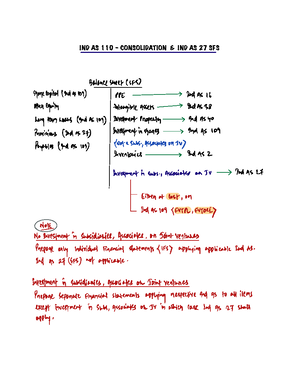 IND AS 110 - CONSOLIDATION & IND AS 27 SFS
Balance Sheet (SFS)
Share Capital (Ind AS 109)
PPE → Ind AS 16
Other Equity
Intangible Assets → Ind AS 38
Long term Loans (Ind AS 109)
Investment Property → Ind AS 40
Provisions (Ind AS 37)
Investment in Assets → Ind AS 109
Payables (Ind AS 109)
(Except Subs, Associates or JV)
Inventories → Ind AS 2
Investment in Subs, Associates or JV → Ind AS 27
Either at Cost, or
Ind AS 109 (FVTPL, FVTOCI)
Note
No Investment in Subsidiaries, Associates, or Joint Ventures
Prepare only Individual Financial Statements (IFS) applying applicable Ind AS.
Ind AS 27 (SFS) not applicable.
Investment in subsidiaries, Associates or Joint Ventures
Prepare Separate Financial Statements applying respective Ind AS to all items
except Investment in Subs, Associates or JV in which case Ind AS 27 shall
apply.